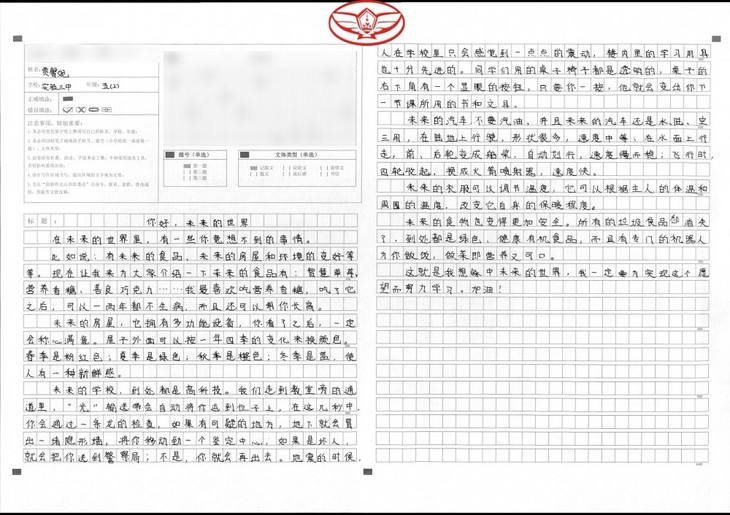 姓名:
学校: 实验二中 年级: 五(2)
正确填涂:
错误填涂:
注意事项,特别重要:
题号(单选)
文体类型(单选)
第一题
第二题
第三题
记叙文
说明文
议论文
散文
读后感
书信
标题: 你好,未来的世界
在未来的世界里,有一些你意想不到的事情。
比如说:有未来的食品、未来的房屋和环境的变好等
等。现在让我来为大家介绍一下未来的食品有:智慧单荨,
营养香糖、善良巧克力……我最喜欢吃营养香糖,吃了它
之后,可以一两年都不生病,而且还可以帮你长高。
未来的房屋,它拥有多功能设备,你看了之后,一定
会称心满意。屋子外面可以按一年四季的变化来换颜色。
春季是粉红色;夏季是绿色;秋季是橙色;冬季是蓝,使
人有一种新鲜感。
未来的学校,到处都是高科技。我们走到教室旁的通
道里,“光”输送带会自动将你送到位子上,在这几秒中,
你会通过一条龙的检查,如果有可疑的地方,地下就会冒
出一堵隐形墙,将你移动到一个鉴定中心,如果是坏人,
就会把你送到警察局;不是,你就会再出去。地震的时候,
人在学校里只会感觉到一点点的震动,楼内里的学习用具
也十分先进的。同学们用的桌子椅子都是透明的,桌子的
右下角有一个显眼的按钮,只要你一按,他就会变出你下
一节课所用的书和文具。
未来的汽车不要汽油,并且未来的汽车还是水陆、空
三用,在陆地上行驶,形状很多,速度中等、在水面上行
走,前、后轮变成船桨,自动划行,速度慢而稳;飞行时,
四轮收起,换成火箭喷射器,速度快。
未来的衣服可以调节温度,它可以根据主人的体温和
周围的温度,改变它自身的保暖程度。
未来的食物也变得更加安全。所有的垃圾食品都消失
了,到处都是绿色、健康有机食品,而且有专门的机器人
为你做饭,做菜即营养又可口。
这就是我想像中未来的世界,我一定要为实现这个愿
望而努力学习。加油!